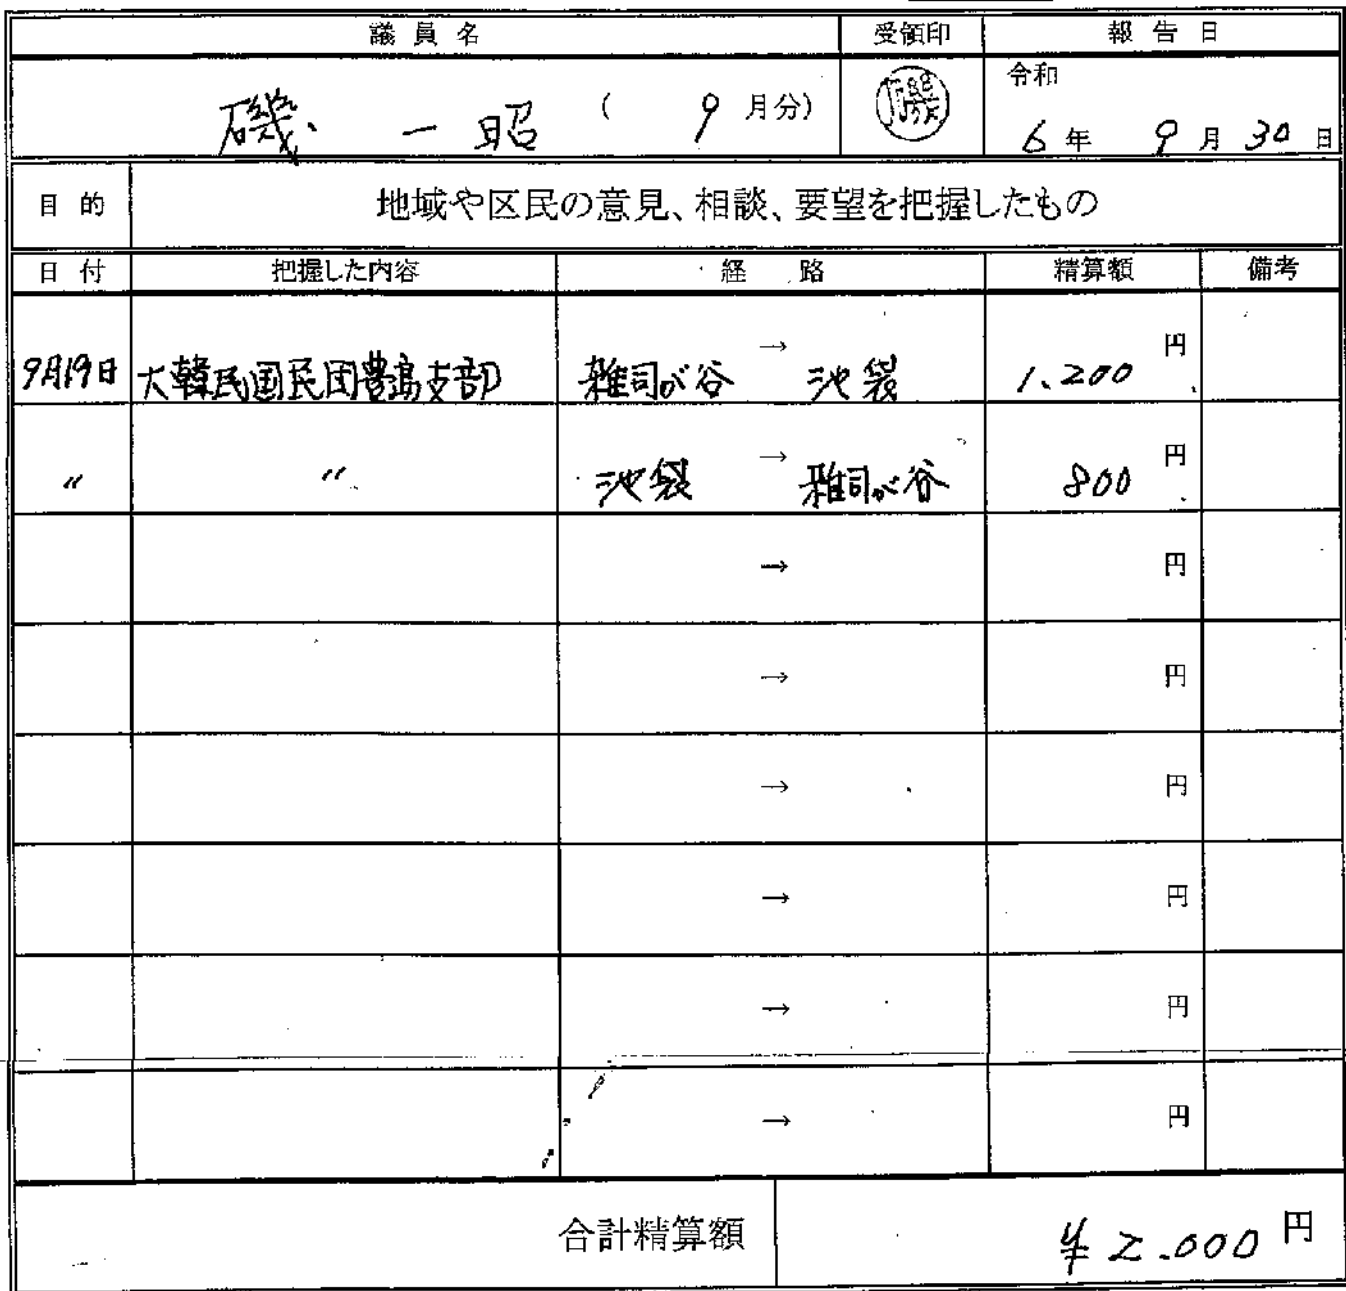 議員名 受領印 報告日
磯 一昭 ( 9 月分) 磯 令和
6 年 9 月 30 日
目的 地域や区民の意見、相談、要望を把握したもの
日付 把握した内容 経路 精算額 備考
9月19日 大韓民国民団豊島支部 雑司が谷 → 池袋 1.200 円
〃 〃 池袋 → 雑司が谷 800 円
→ 円
→ 円
→ 円
→ 円
→ 円
→ 円
合計精算額 ¥2.000 円